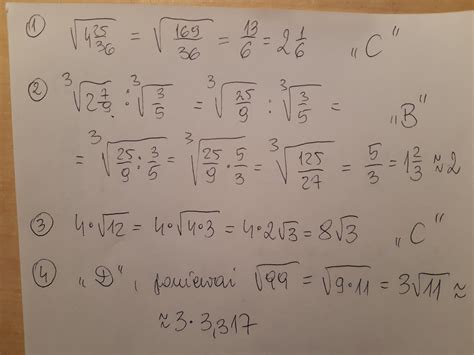 ① √4 25/36 = √169/36 = 13/6 = 2 1/6 „C"
② ³√2 7/9 : ³√3/5 = ³√25/9 : ³√3/5 = „B"
= ³√25/9 : 3/5 = ³√25/9 · 5/3 = ³√125/27 = 5/3 = 1 2/3 ≈ 2
③ 4·√12 = 4·√4·3 = 4·2√3 = 8√3 „C"
④ „D", ponieważ √99 = √9·11 = 3√11 ≈
≈ 3·3,317